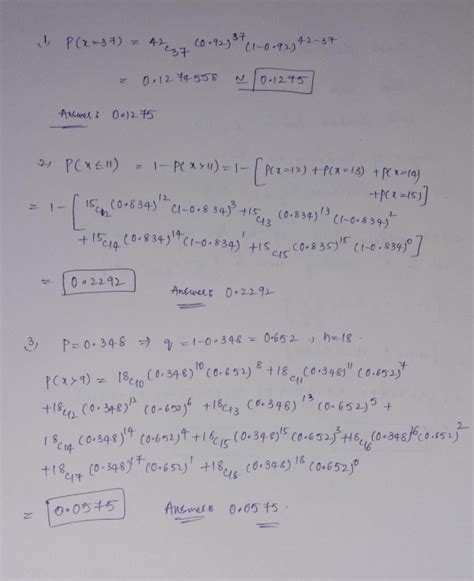 1, P(x=37) = 42C37 (0.92)^37 (1-0.92)^42-37
= 0.1274558 ≈ 0.1275
Answer: 0.1275
2, P(x≤11) = 1-P(x>11) = 1-[P(x=12) + P(x=13) + P(x=14)
+P(x=15)]
= 1-[15C12 (0.834)^12 (1-0.834)^3 + 15C13 (0.834)^13 (1-0.834)^2
+ 15C14 (0.834)^14 (1-0.834)^1 + 15C15 (0.835)^15 (1-0.834)^0]
= 0.2292 Answer: 0.2292
3, P=0.348 ⇒ q = 1-0.348 = 0.652, n=18.
P(x>9) = 18C10 (0.348)^10 (0.652)^8 + 18C11 (0.348)^11 (0.652)^7
+18C12 (0.348)^12 (0.652)^6 + 18C13 (0.348)^13 (0.652)^5 +
18C14 (0.348)^14 (0.652)^4 + 18C15 (0.348)^15 (0.652)^3 + 18C16 (0.348)^16 (0.652)^2
+18C17 (0.348)^17 (0.652)^1 + 18C18 (0.348)^18 (0.652)^0
= 0.0575 Answer: 0.0575